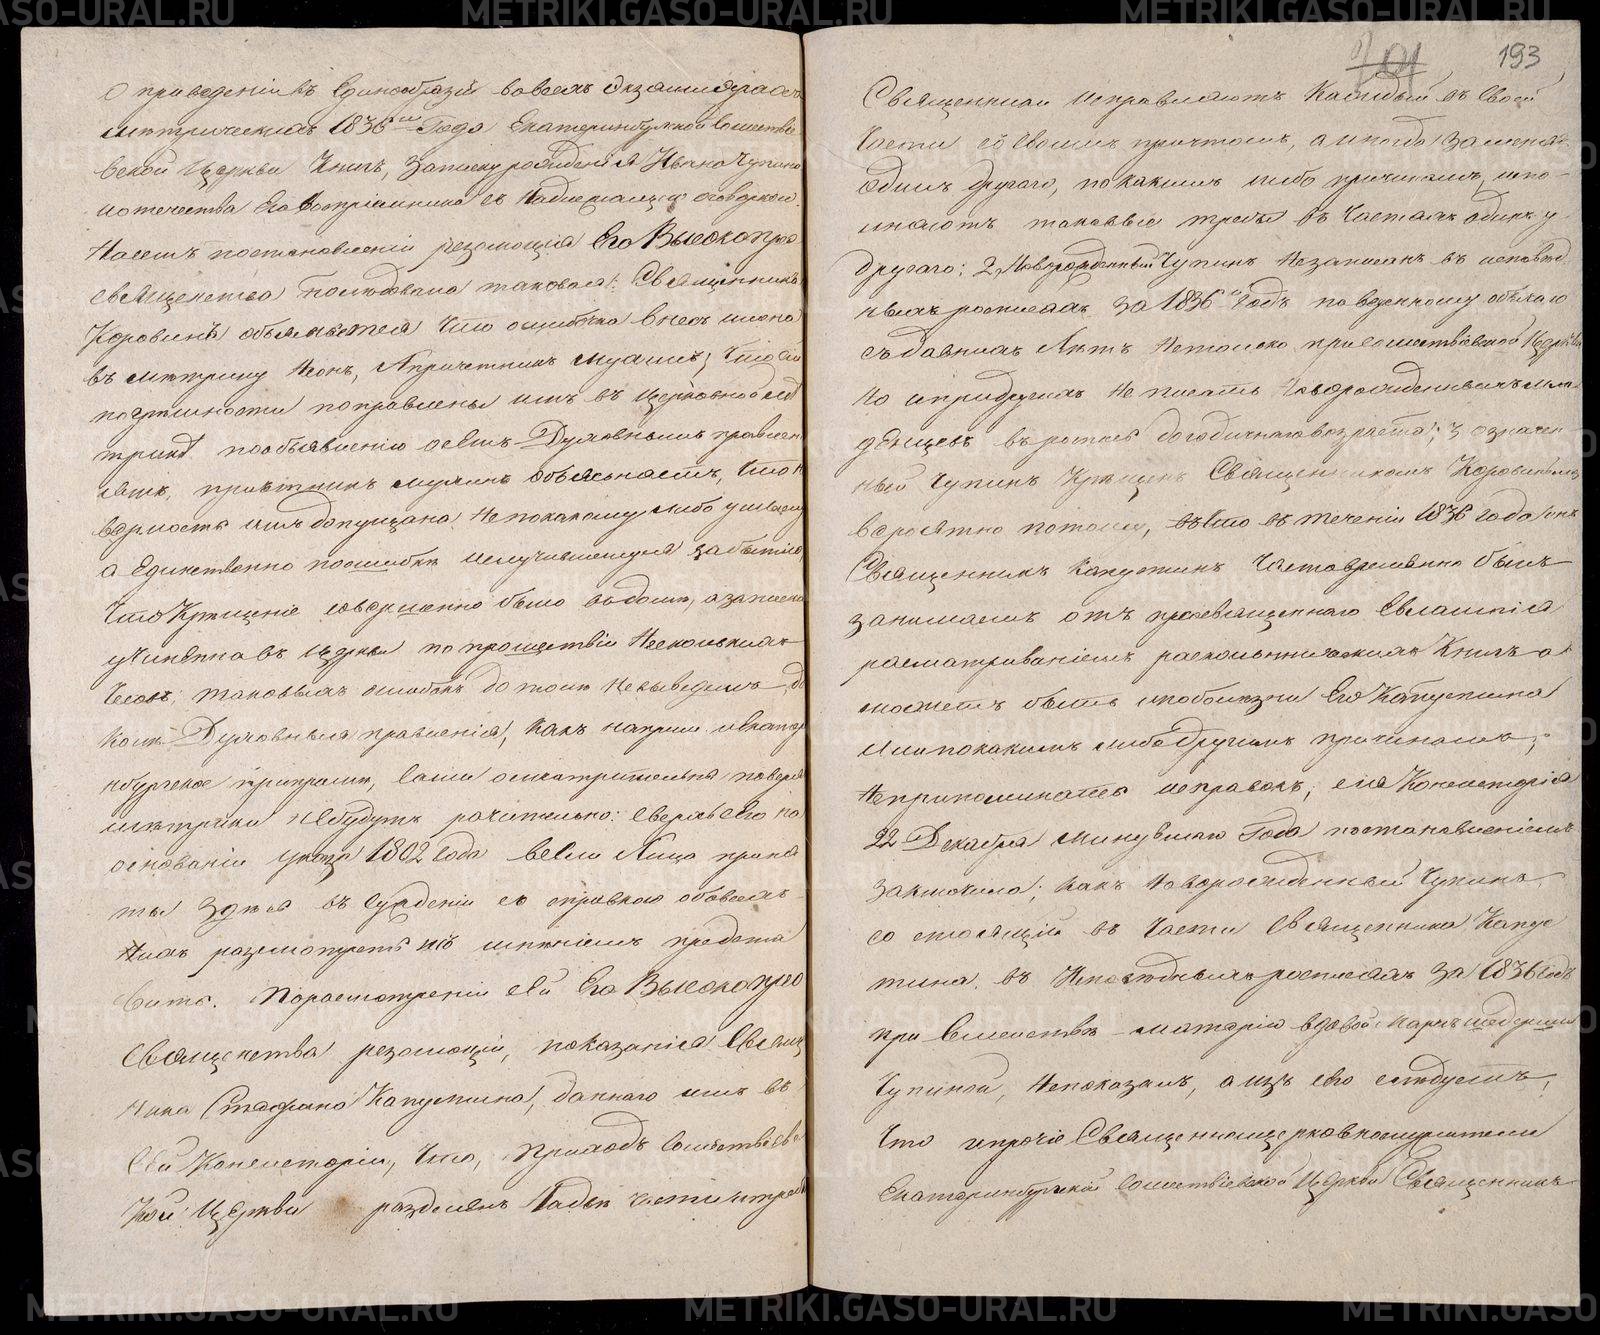 О приведеніи въ Единообразіи во всехъ экземплярахъ
метрическихъ 1836го Года Екатеринбургской Сошествіе
вской Церкви Книгъ, записку рожденія Ивана Чупина
и отечества Его Воспріемника съ надлежащею оговоркою.
На семъ постановленіи резолюція Его Высокопрео
священства последовала таковая: Священникъ
Коровинъ объявляется что ошибкою внесъ имена
въ метрику Іона, а причетникъ
по церковной ме
трике по объявленію о семъ Духовнымъ правлен
іемъ, причетникъ объясняетъ, что не
верность имъ допущена не по какому либо умыслу
а Единственно по ошибке и случившемуся забытію,
что Крещеніе совершенно было въ дому, а записка
учинена въ Церкви по прошествіи несколькихъ
часовъ; таковыхъ ошибокъ дотоле не выведемъ, до
коле Духовныя правленія, какъ наприм. и Екатери
нбургское припрашив, сами осмотрительны поверя
метрики не будутъ рачительно: сверхъ сего на
основаніи указа 1802 года все ли Лица приня
ты здесь въ сужденіи со справкою обо всехъ
нихъ разсмотреть и съ мненіемъ предста
вить. По разсмотреніи сей Его Высокопрео
священства резолюціи, показанія Священ
ника Стефана Капустина, даннаго имъ въ
сей Консисторіи, что, Приходъ Сошествіевс
кой Церкви разделенъ на две части и требы
193
Священники исправляютъ каждый въ своей
части со своимъ причтомъ, а иногда заменяя
одинъ другаго, по какимъ либо причинамъ, испо-
лняютъ таковые требы въ частяхъ одинъ у
другаго; 2, Новорожденный Чупинъ незаписанъ въ исповед
ныхъ росписяхъ за 1836й годъ по веденному обычаю
съ давнихъ летъ не только при Сошествіевской Церкви
но и при другихъ не писать новорожденныхъ мла
денцевъ въ роспись до годичнаго возраста; 3, означен-
ный Чупинъ крещенъ Священникомъ Коровинымъ
вероятно потому, что въ теченіи 1836 года онъ
Священникъ Капустинъ часто временно былъ
занимаемъ отъ преосвященнаго Евлампія
разсматриваніемъ раскольническихъ Книгъ а
можетъ быть и по болезни Его Капустина
или по какимъ либо другимъ причинамъ,
не припоминаетъ исправокъ; сія Консисторія
22 Декабря минувшаго Года постановленіемъ
заключила; какъ новорожденный Чупинъ,
состоящій въ части Священника Капус
тина, въ исповедныхъ росписяхъ за 1836 годъ
при семействе матери вдовой, маркшедерши
Чупиной, непоказанъ, а изъ сего следуетъ,
что и прочіе Священноцерковнослужители
Екатеринбургской Сошествіевской Церкви Священникъ
METRIKI.GASO-URAL.RU